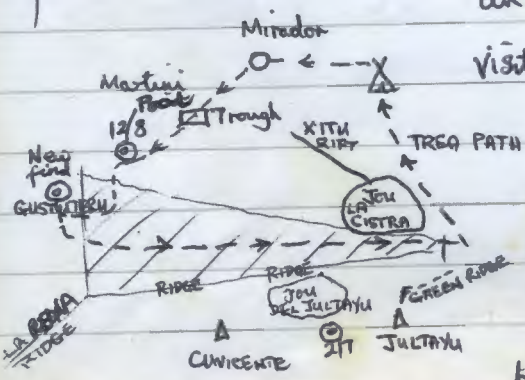 Mirador
Visit
Martini
Point
Trough
12/8
XITU
RIFT
TRESA PATH
New
find
GUSTUTERU
JOU
LA
CISTRA
RIDGE
RIDGE
JOU
DEL JULTAYU
GREEN RIDGE
LA
RIDGE
CUVICENTE
2/7
JULTAYU